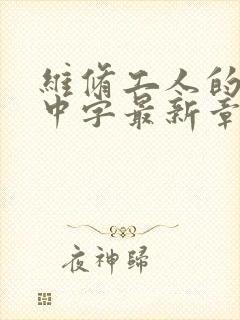 維脩工人的
中字最新章
夜神歸